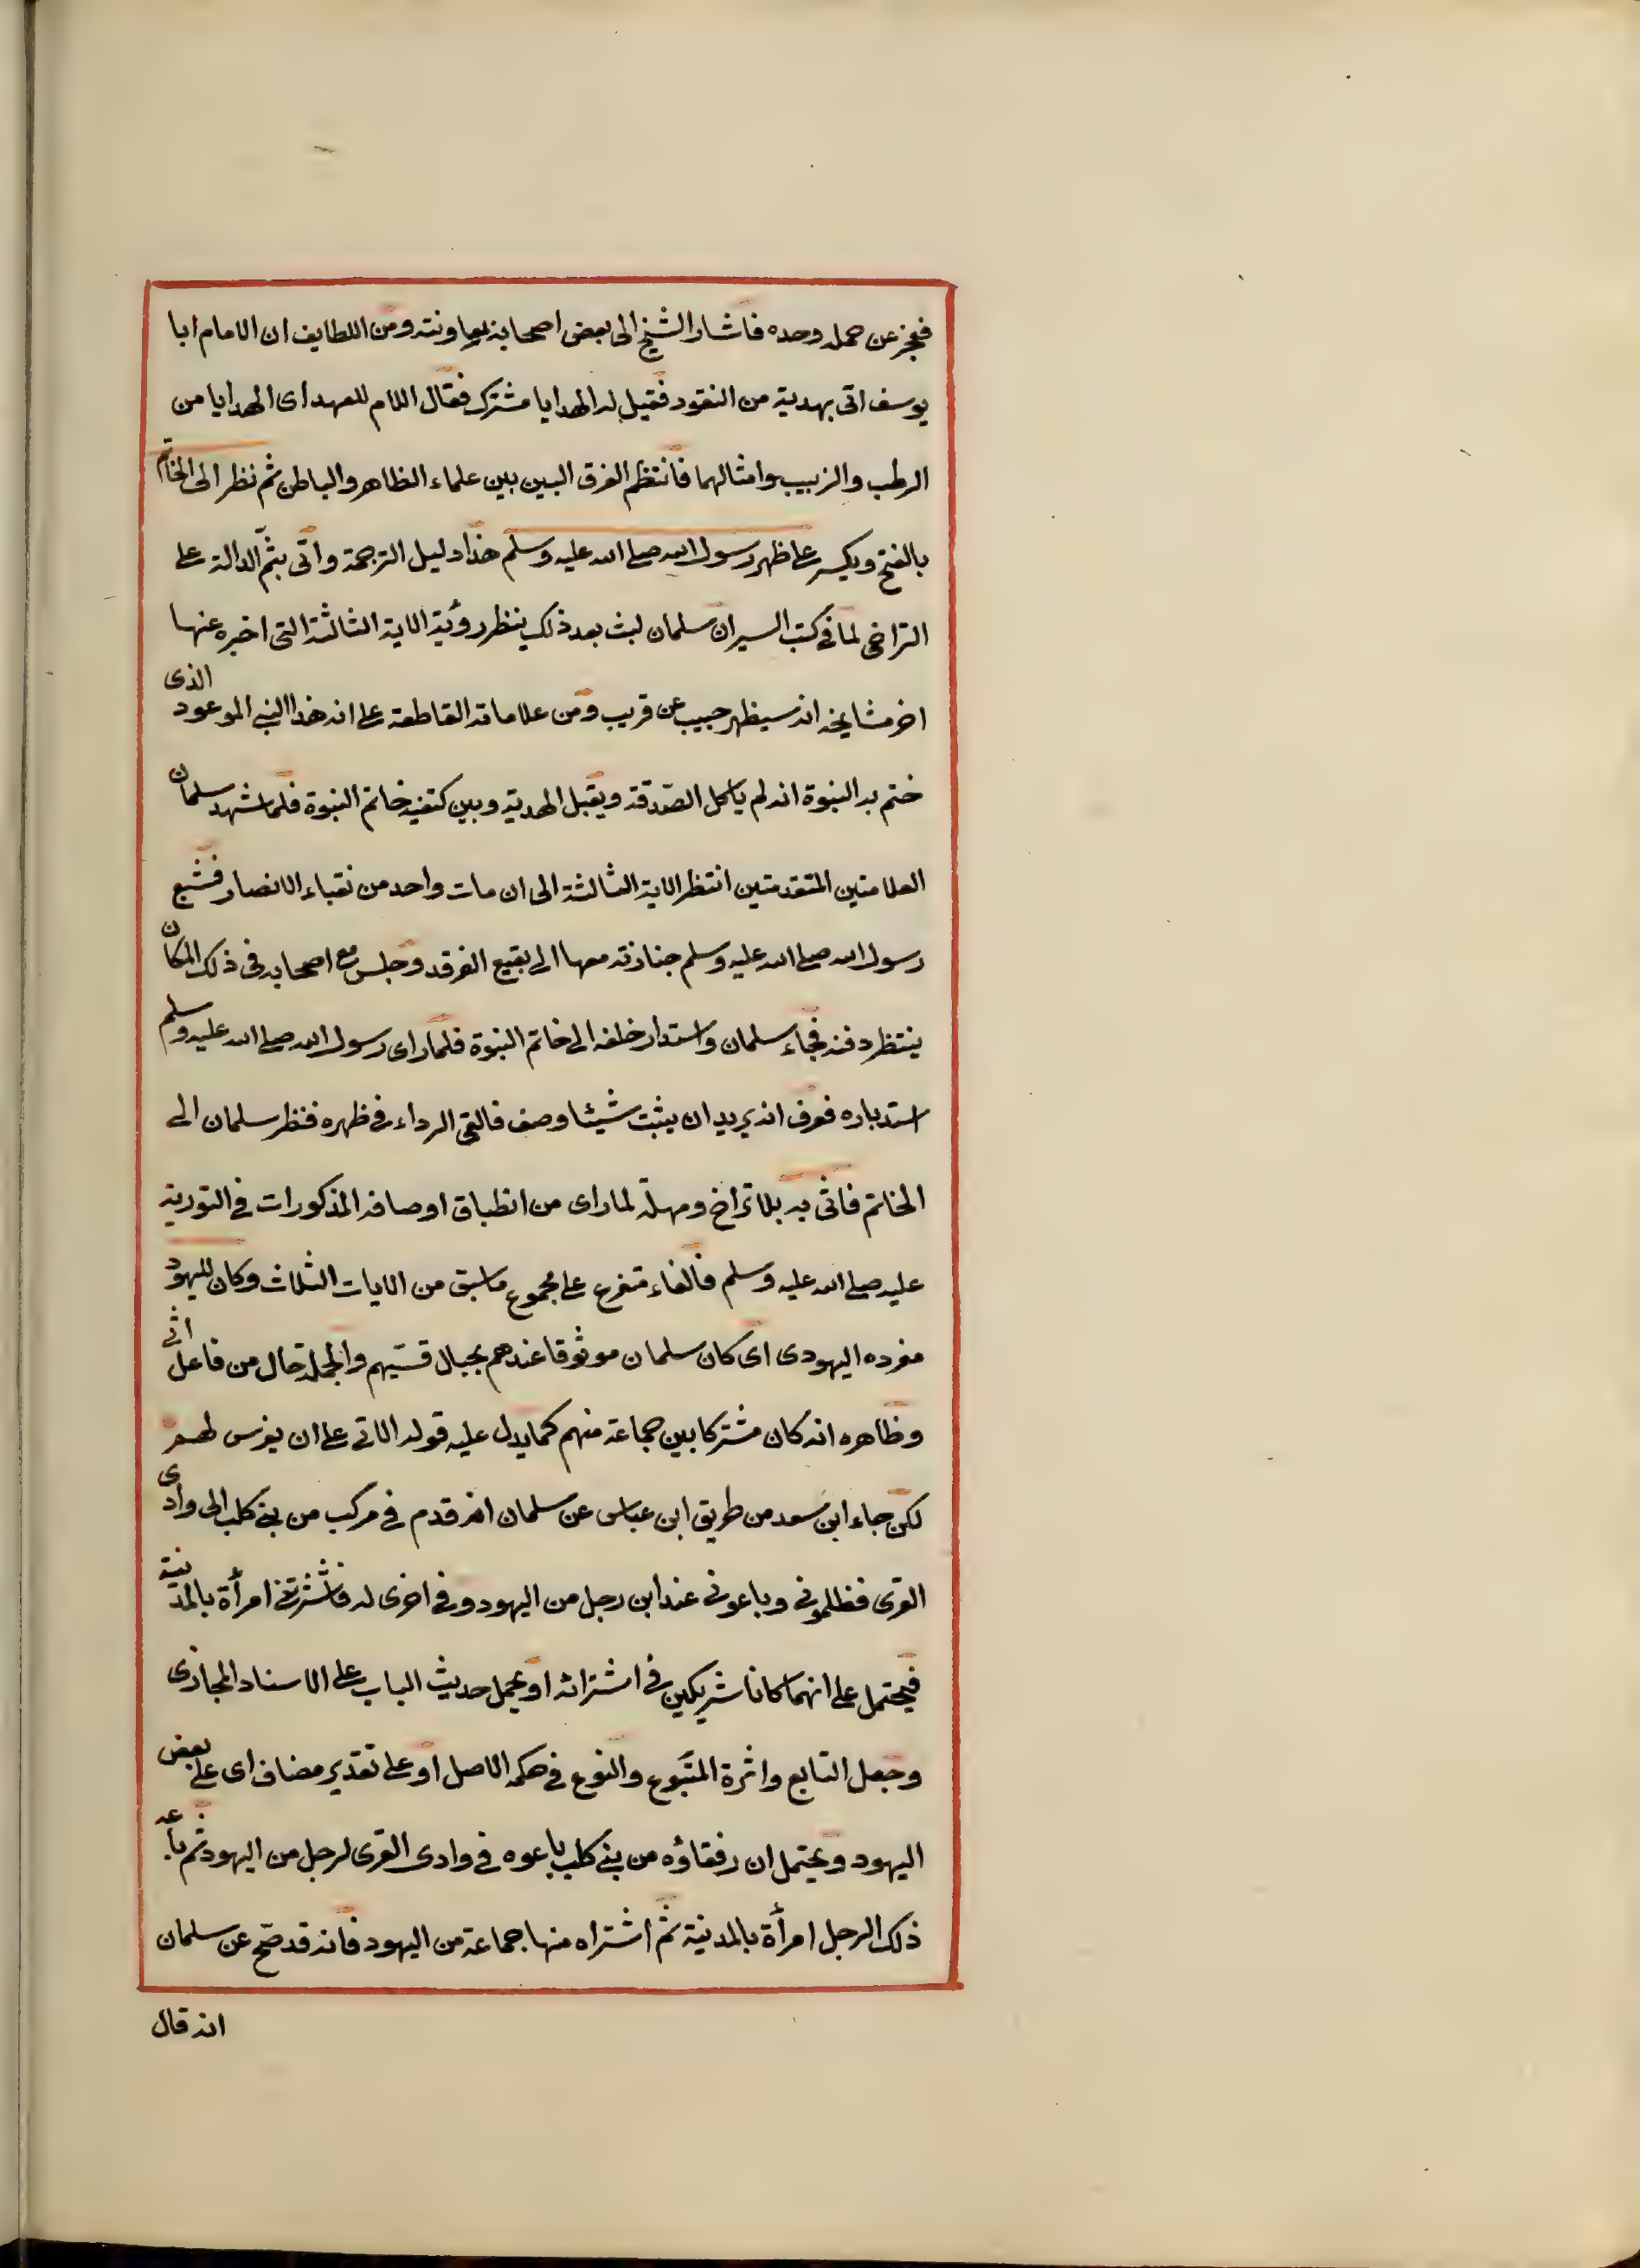 فعجز عن حمله وحده فاشار الشيخ الى بعض اصحابه بمعاونته ومن اللطايف ان الامام ابا
يوسف اتى بهدية من النقود فقيل له الهدايا مشترك فقال اللام للعهد اى الهدايا من
الرطب والزبيب وامثالهما فانتظم الفرق البين بين علماء الظاهر والباطن ثم نظر الى الخاتم
بالفتح ويكسر على ظهر رسول الله صلى الله عليه وسلم هذا دليل الترجمة واتى بثمّ الدالة على
التراخى لما فى كتب السير ان سلمان لبث بعد ذلك ينظر رؤية الاية الثالثة التى اخبره عنها
اخر مشايخه انه سيظهر حبيب عن قريب ومن علاماته القاطعة على انه هذا النبى الموعود الذى
ختم به النبوة انه لم ياكل الصّدقة ويقبل الهدية وبين كتفيه خاتم النبوة فلما شهد سلمان
العلامتين المتقدمتين انتظر الاية الثالثة الى ان مات واحد من نقباء الانصار فشيع
رسول الله صلى الله عليه وسلم جنازته معها الى بقيع الغرقد وجلس مع اصحابه فى ذلك المكان
ينتظر دفنه فجاء سلمان واستدار خلفه الى خاتم النبوة فلما راى رسول الله صلى الله عليه وسلم
استدباره فعرف انه يريد ان يثبت شيئا وصف فالقى الرداء فى ظهره فنظر سلمان الى
الخاتم فاتى به بلا تراخ ومهلة لما راى من انطباق اوصافه المذكورات فى التورية
عليه صلى الله عليه وسلم فالفاء متفرع على مجموع ما سبق من الايات الثلاث وكان لليهود
مفرده اليهودى اى كان سلمان موثوقا عندهم بحبال قسّيهم والجملة حال من فاعل اتى
وظاهره انه كان مشتركا بين جماعة منهم كما يدل عليه قوله الاتى على ان يغرس لهم
لكن جاء ابن سعد من طريق ابن عباس عن سلمان انه قدم فى مركب من بنى كلب الى وادى
القرى فظلمونى وباعونى عند ابن رجل من اليهود وفى اخرى له فاشترتنى امرأة بالمدينة
فيحتمل على انهما كانا شريكين فى اشترائه او يحمل حديث الباب على الاسناد المجازى
وجعل التابع المتبوع والنوع فى حكم الاصل او على تقدير مضاف اى على بعض
اليهود ويحتمل ان رفقاؤه من بنى كلب باعوه فى وادى القرى لرجل من اليهود ثم باعه
ذلك الرجل امرأة بالمدينة ثم اشتراه منها جماعة من اليهود فانه قد صحّ عن سلمان
انه قال